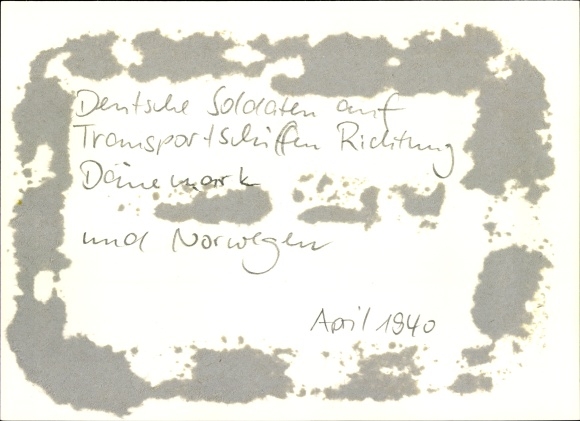 Deutsche Soldaten auf
Transportschiffen Richtung
Dänemark
und Norwegen
April 1940